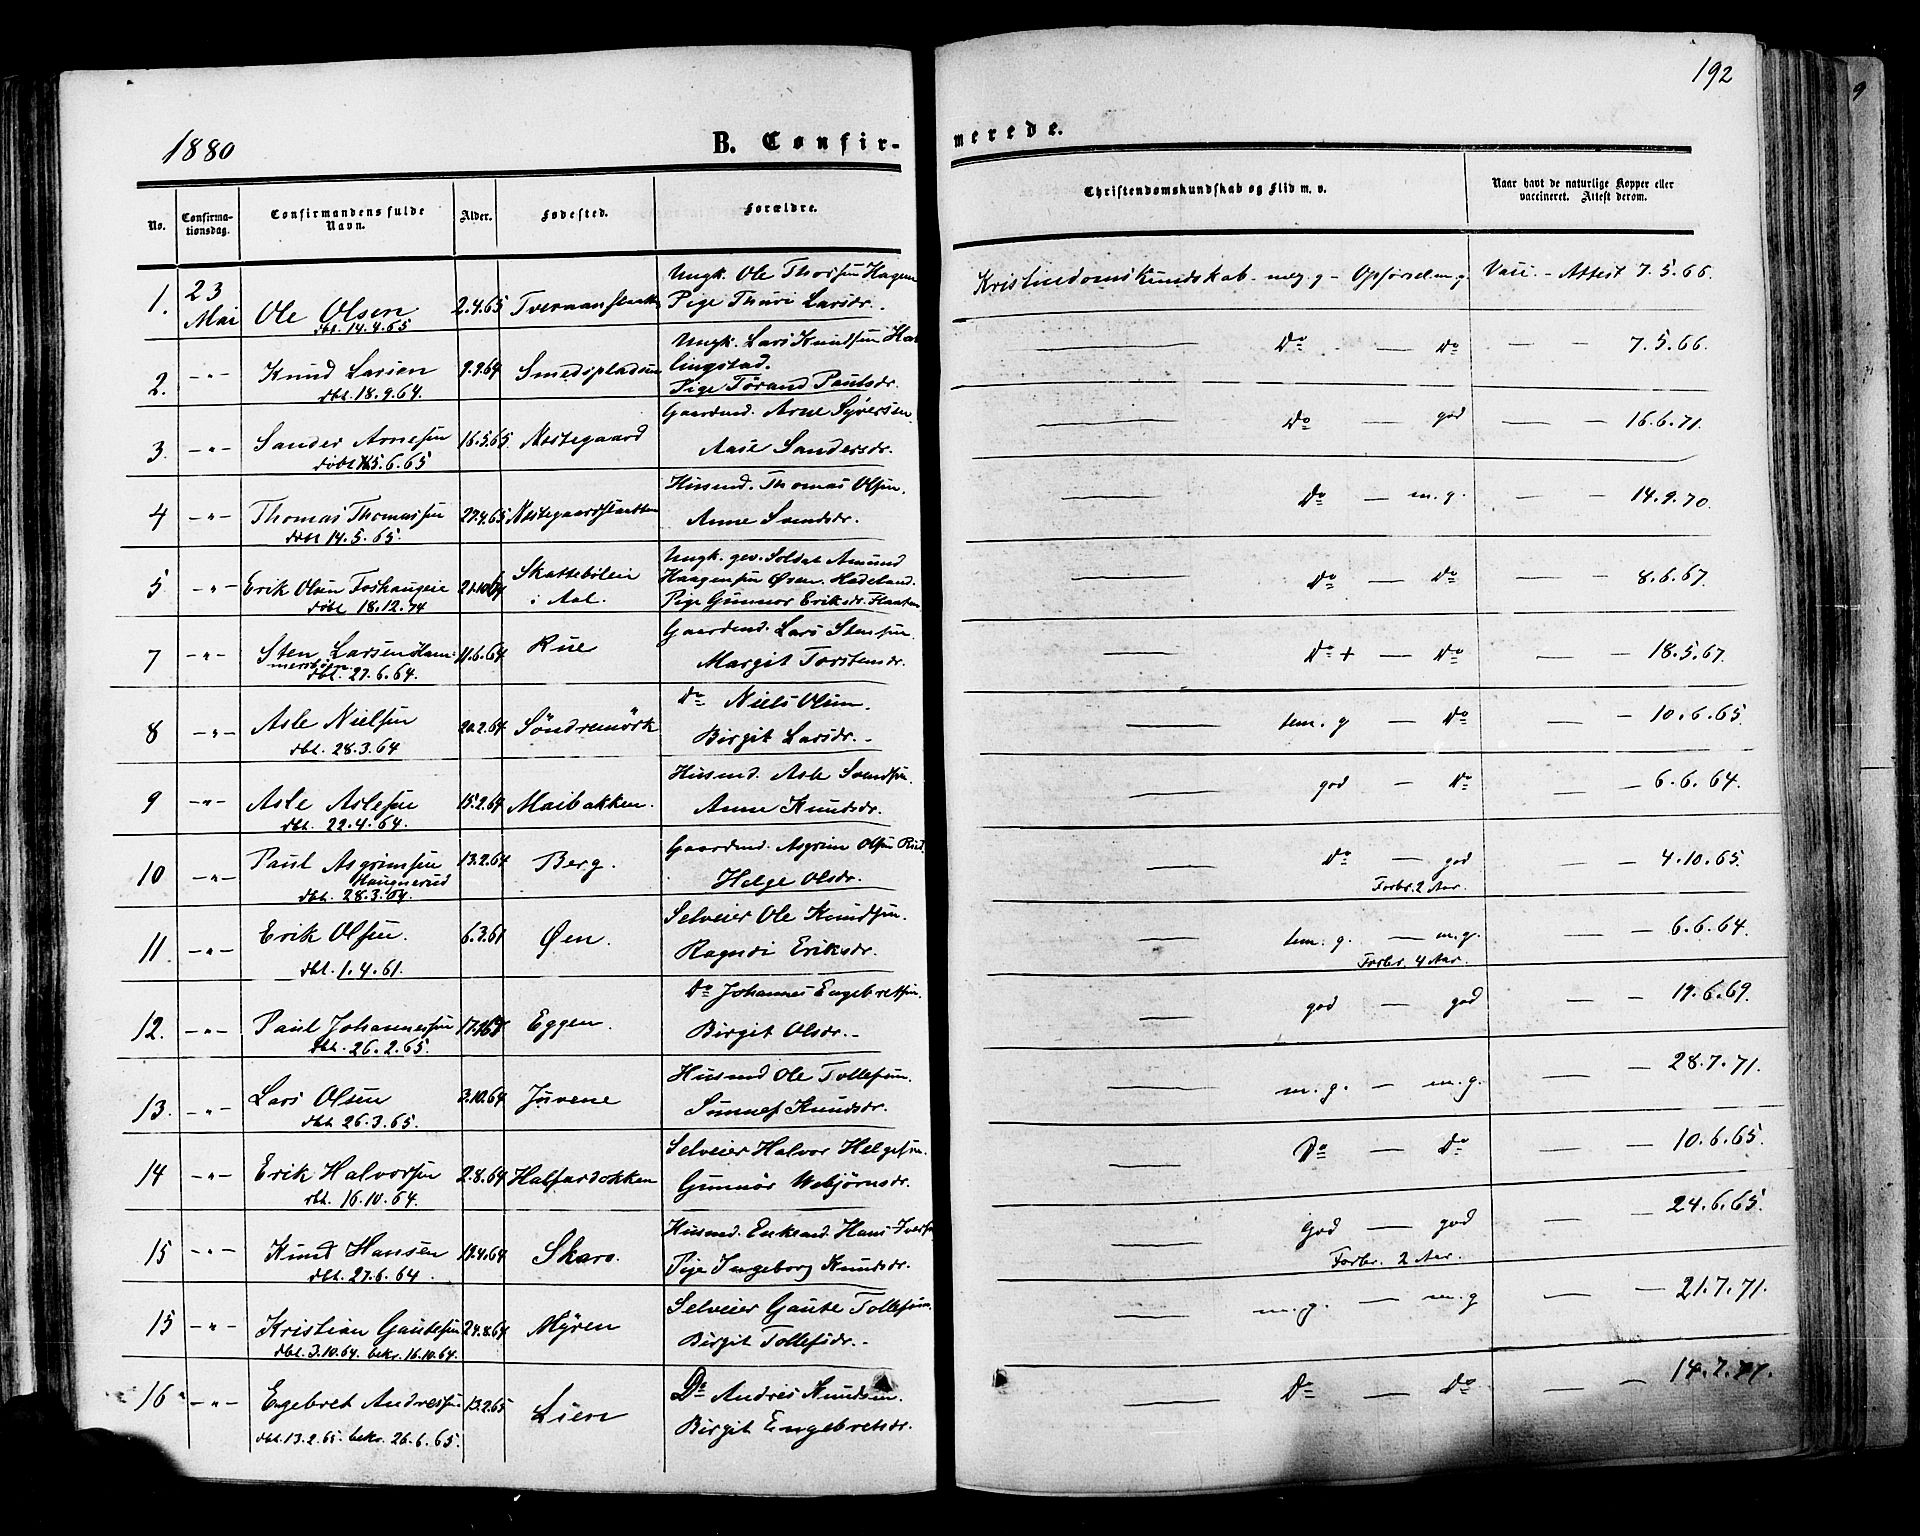 192
1880
B. Confir-
merede.
No.
Confirma-
tionsdag.
Confirmandens fulde
Navn.
Alder.
Fødested.
Forældre.
Christendomskundskab og Flid m. v.
Naar havt de naturlige Kopper eller
vaccineret. Attest derom.
1. 23 Mai Ole Olsen 2.4.65
dbt. 14.4.65
Ungk. Ole Thorsen Hagen
Pige Thuri Larsdr.
Kristendomskundskab meg. g - Opførsel m. g. Vacc. - Attest 7.5.66.
2. -"- Knud Larsen 9.9.64 Smedspladsen
dbt. 18.9.64.
Ungk. Lars Knudsen Hal
lingstad.
Pige Törand Paulsdr.
Do — Do — — 7.5.66.
3. -"- Sander Arnesen 16.5.65 Nestegaard
döbt 5.6.65
Gaardmd. Arne Syversen
Aase Sandersdr.
Do — god — — 16.6.71.
4 -"- Thomas Thomassen 27.4.65 Nestegaardslaatten
döbt 14.5.65.
Husmd. Thomas Olsen.
Anne Svendsdr.
Do — m. g. — — 14.9.70.
5 -"- Erik Olsen 21.10.64 Skattebölein
i Aal.
döbt 18.12.74
Ungk. gev. Soldat Amund
Haagensen Øsen. Hadeland.
Pige Gunnor Eriksdr. Flaaten
Do — Do — — 8.6.67.
7 -"- Sten Larsen Ham-
mersbøen 11.6.64 Rue
dbt. 27.6.64.
Gaardmd. Lars Stensen.
Margit Torstensdr.
Do + — Do — — 18.5.67.
8 -"- Asle Nielsen 20.2.64 Söndremörk
dbt. 28.3.64
Do Niels Olsen.
Birgit Larsdr. -
tem. g — Do — — 10.6.65.
9 -"- Asle Aslesen 15.2.64 Maibakken.
dbt. 22.4.64.
Husmd. Asle Svendsen.
Anne Knudsdr.
god — Do — — 6.6.64.
10 -"- Paul Asgrimsen
Haugnerud 13.2.64 Berg.
dbt. 28.3.64.
Gaardmd. Asgrim Olsen Rud.
Helge Olsdr.
Do — god — — 4.10.65.
Forbr. 2 Aar.
11. -"- Erik Olsen. 6.3.61 Øen.
dbt. 1.4.61.
Selveier Ole Knudsen.
Ragndi Eriksdr.
tem. g. — m. g. — — 6.6.64.
Forbr. 4 Aar.
12. -"- Paul Johannessen Eggen.
dbt. 26.2.65.
Do Johannes Engebretsen.
Birgit Olsdr. -
god — god — — 19.6.69.
13. -"- Lars Olsen 3.10.64 Juvene
dbt. 26.3.65.
Husmd Ole Tollefsen.
Sunnef Knudsdr.
m. g. — m. g. — — 28.7.71.
14 -"- Erik Halvorsen 2.8.64 Halfardokken
dbt. 16.10.64.
Selveier Halvor Helgesen.
Gunnör Webjørnsdr.
Do — Do — 10.6.65.
15 -"- Knud Hansen 19.4.64 Skaro.
dbt. 27.6.64.
Husmd. Enkemd. Hans Iversen
Pige Ingeborg Knudsdr.
God — god — — 24.6.65.
Forbr. 2 Aar.
15 -"- Kristian Gautesen 24.8.64 Mÿren
dbt. 3.10.64. bekr. 16.10.64.
Selveier Gaute Tollefsen.
Birgit Tollefsdr. -
m. g. — m. g — — 21.7.71.
16 -"- Egebret Andressen 13.2.65 Lien
dbt. 13.2.65. bekr. 26.6.65.
Do Andres Knudsen.
Birgit Engebretsdr.
Do — Do — —